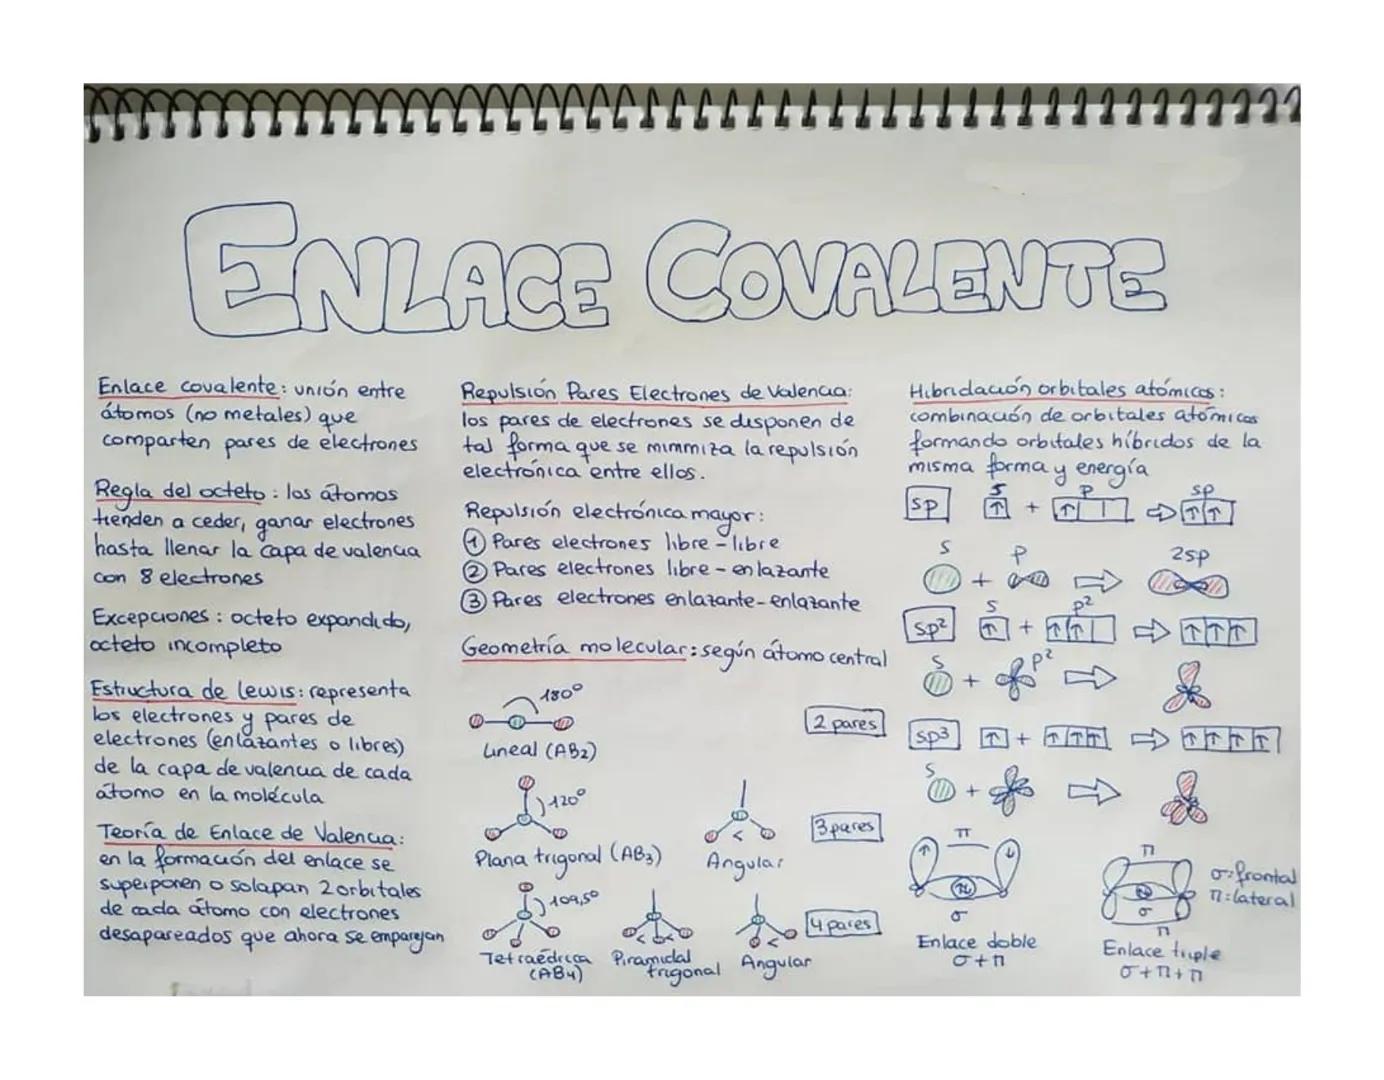 ENLACE COVALENTE
Enlace covalente: unión entre
átomos (no metales) que
comparten pares de electrones
Regla del octeto: los átomos
tienden a ceder, ganar electrones
hasta llenar la capa de valencia
con 8 electrones
Excepciones: octeto expandido,
octeto incompleto
Estructura de Lewis: representa
los electrones y pares de
electrones (enlazantes o libres)
de la capa de valencia de cada
átomo en la molécula
Teoría de Enlace de Valencia:
en la formación del enlace se
superponen o solapan 2 orbitales
de cada átomo con electrones
desapareados que ahora se emparejan
Repulsión Pares Electrones de Valencia:
los pares de electrones se disponen de
tal forma que se minimiza la repulsión
electrónica entre ellos.
Repulsión electrónica mayor:
1 Pares electrones libre - libre
2 Pares electrones libre - enlazante
3 Pares electrones enlazante - enlazante
Geometría molecular: según átomo central
180°
Lineal (AB2)
2 pares
120°
Plana trigonal (AB3)
<
Angular
3 pares
109,5°
Tetraédrica
(AB4)
< <
Piramidal
trigonal
<
Angular
4 pares
Hibridación orbitales atómicos:
combinación de orbitales atómicos
formando orbitales híbridos de la
misma forma y energía
S P sp
sp ↑ + ↑ ⇒ ↑ ↑
S P 2sp
+ ⇒
S p²
sp² ↑ + ↑ ↑ ⇒ ↑ ↑ ↑
S p²
+ ⇒
sp³ ↑ + ↑ ↑ ↑ ⇒ ↑ ↑ ↑ ↑
S
+ ⇒
π
↑ ↑↓ ↓
σ
Enlace doble
σ + π
π
↑↓
σ
π
Enlace triple
σ + π + π
σ: frontal
π: lateral